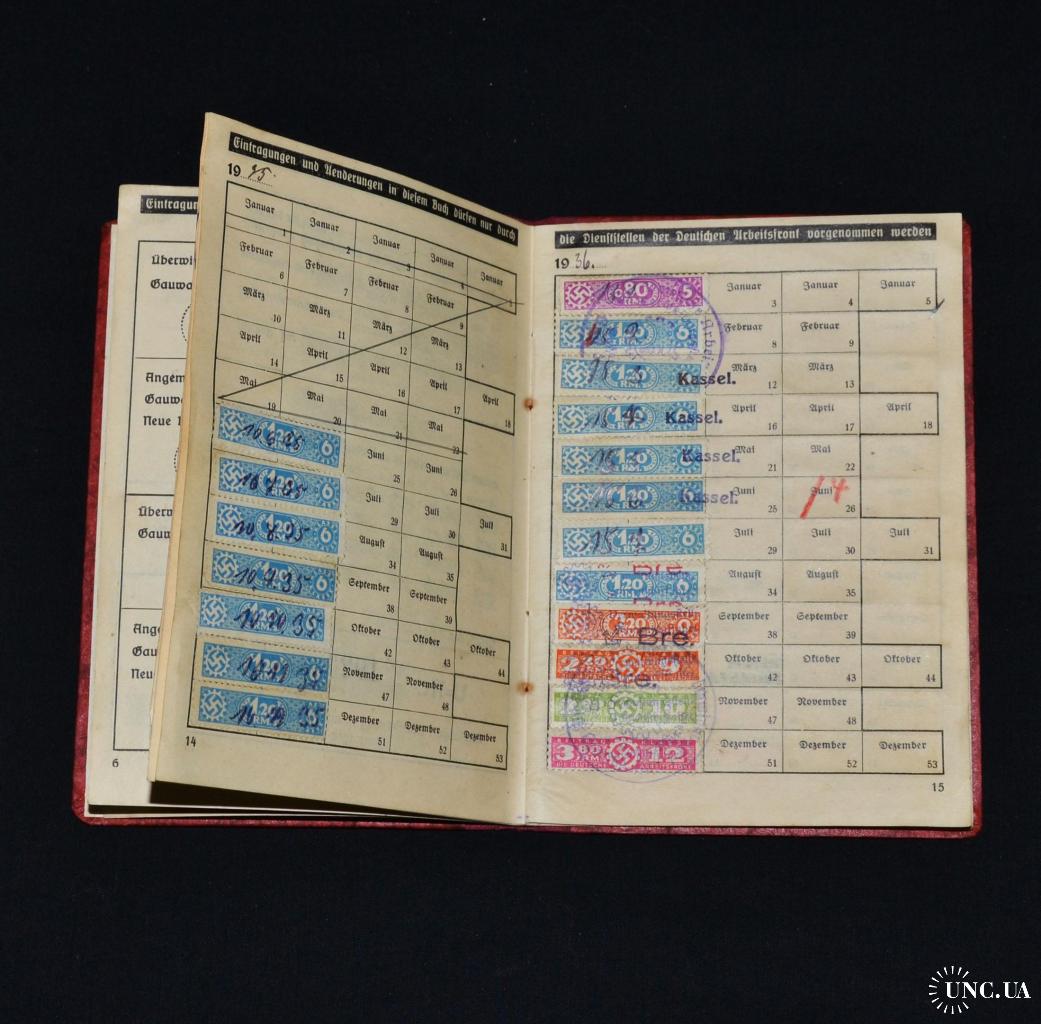 Eintragungen und Aenderungen in diesem Buch dürfen nur durch
1935.
Januar 1 Januar 2 Januar 3 Januar 4 Januar 5
Februar 6 Februar 7 Februar 8 Februar 9
März 10 März 11 März 12 März 13
April 14 April 15 April 16 April 17 April 18
Mai 19 Mai 20 Mai 21 Mai 22
10 6 35 6 Juni 25 Juni 26
10 7 35 6 Juli 29 Juli 30 Juli 31
1.20 10 8 35 6 August 34 August 35
10 9 35 6 September 38 September 39
6 Oktober 42 Oktober 43 Oktober 44
6 November 47 November 48
1.20 RM 6 Dezember 51 Dezember 52 Dezember 53
14
Eintragun
überwi
Gauwa
Angem
Gauwa
Neue
Überw
Gauw
Ange
Gau
Neu
6
die Dienststellen der Deutschen Arbeitsfront vorgenommen werden
1936.
80 RM 5 Januar 3 Januar 4 Januar 5
1.20 6 Februar 8 Februar 9
1.20 RM 6 Kassel. März 12 März 13
6 Kassel. April 16 April 17 April 18
1.20 Kassel. Mai 21 Mai 22
1.20 6 Kassel. Juni 25 Juni 26 14
1.20 6 Juli 29 Juli 30 Juli 31
1.20 RM 6 August 34 August 35
1.20 RM Bre. September 38 September 39
2 Oktober 42 Oktober 43 Oktober 44
November 47 November 48
3 60 RM 12 Dezember 51 Dezember 52 Dezember 53
15
UNC.UA